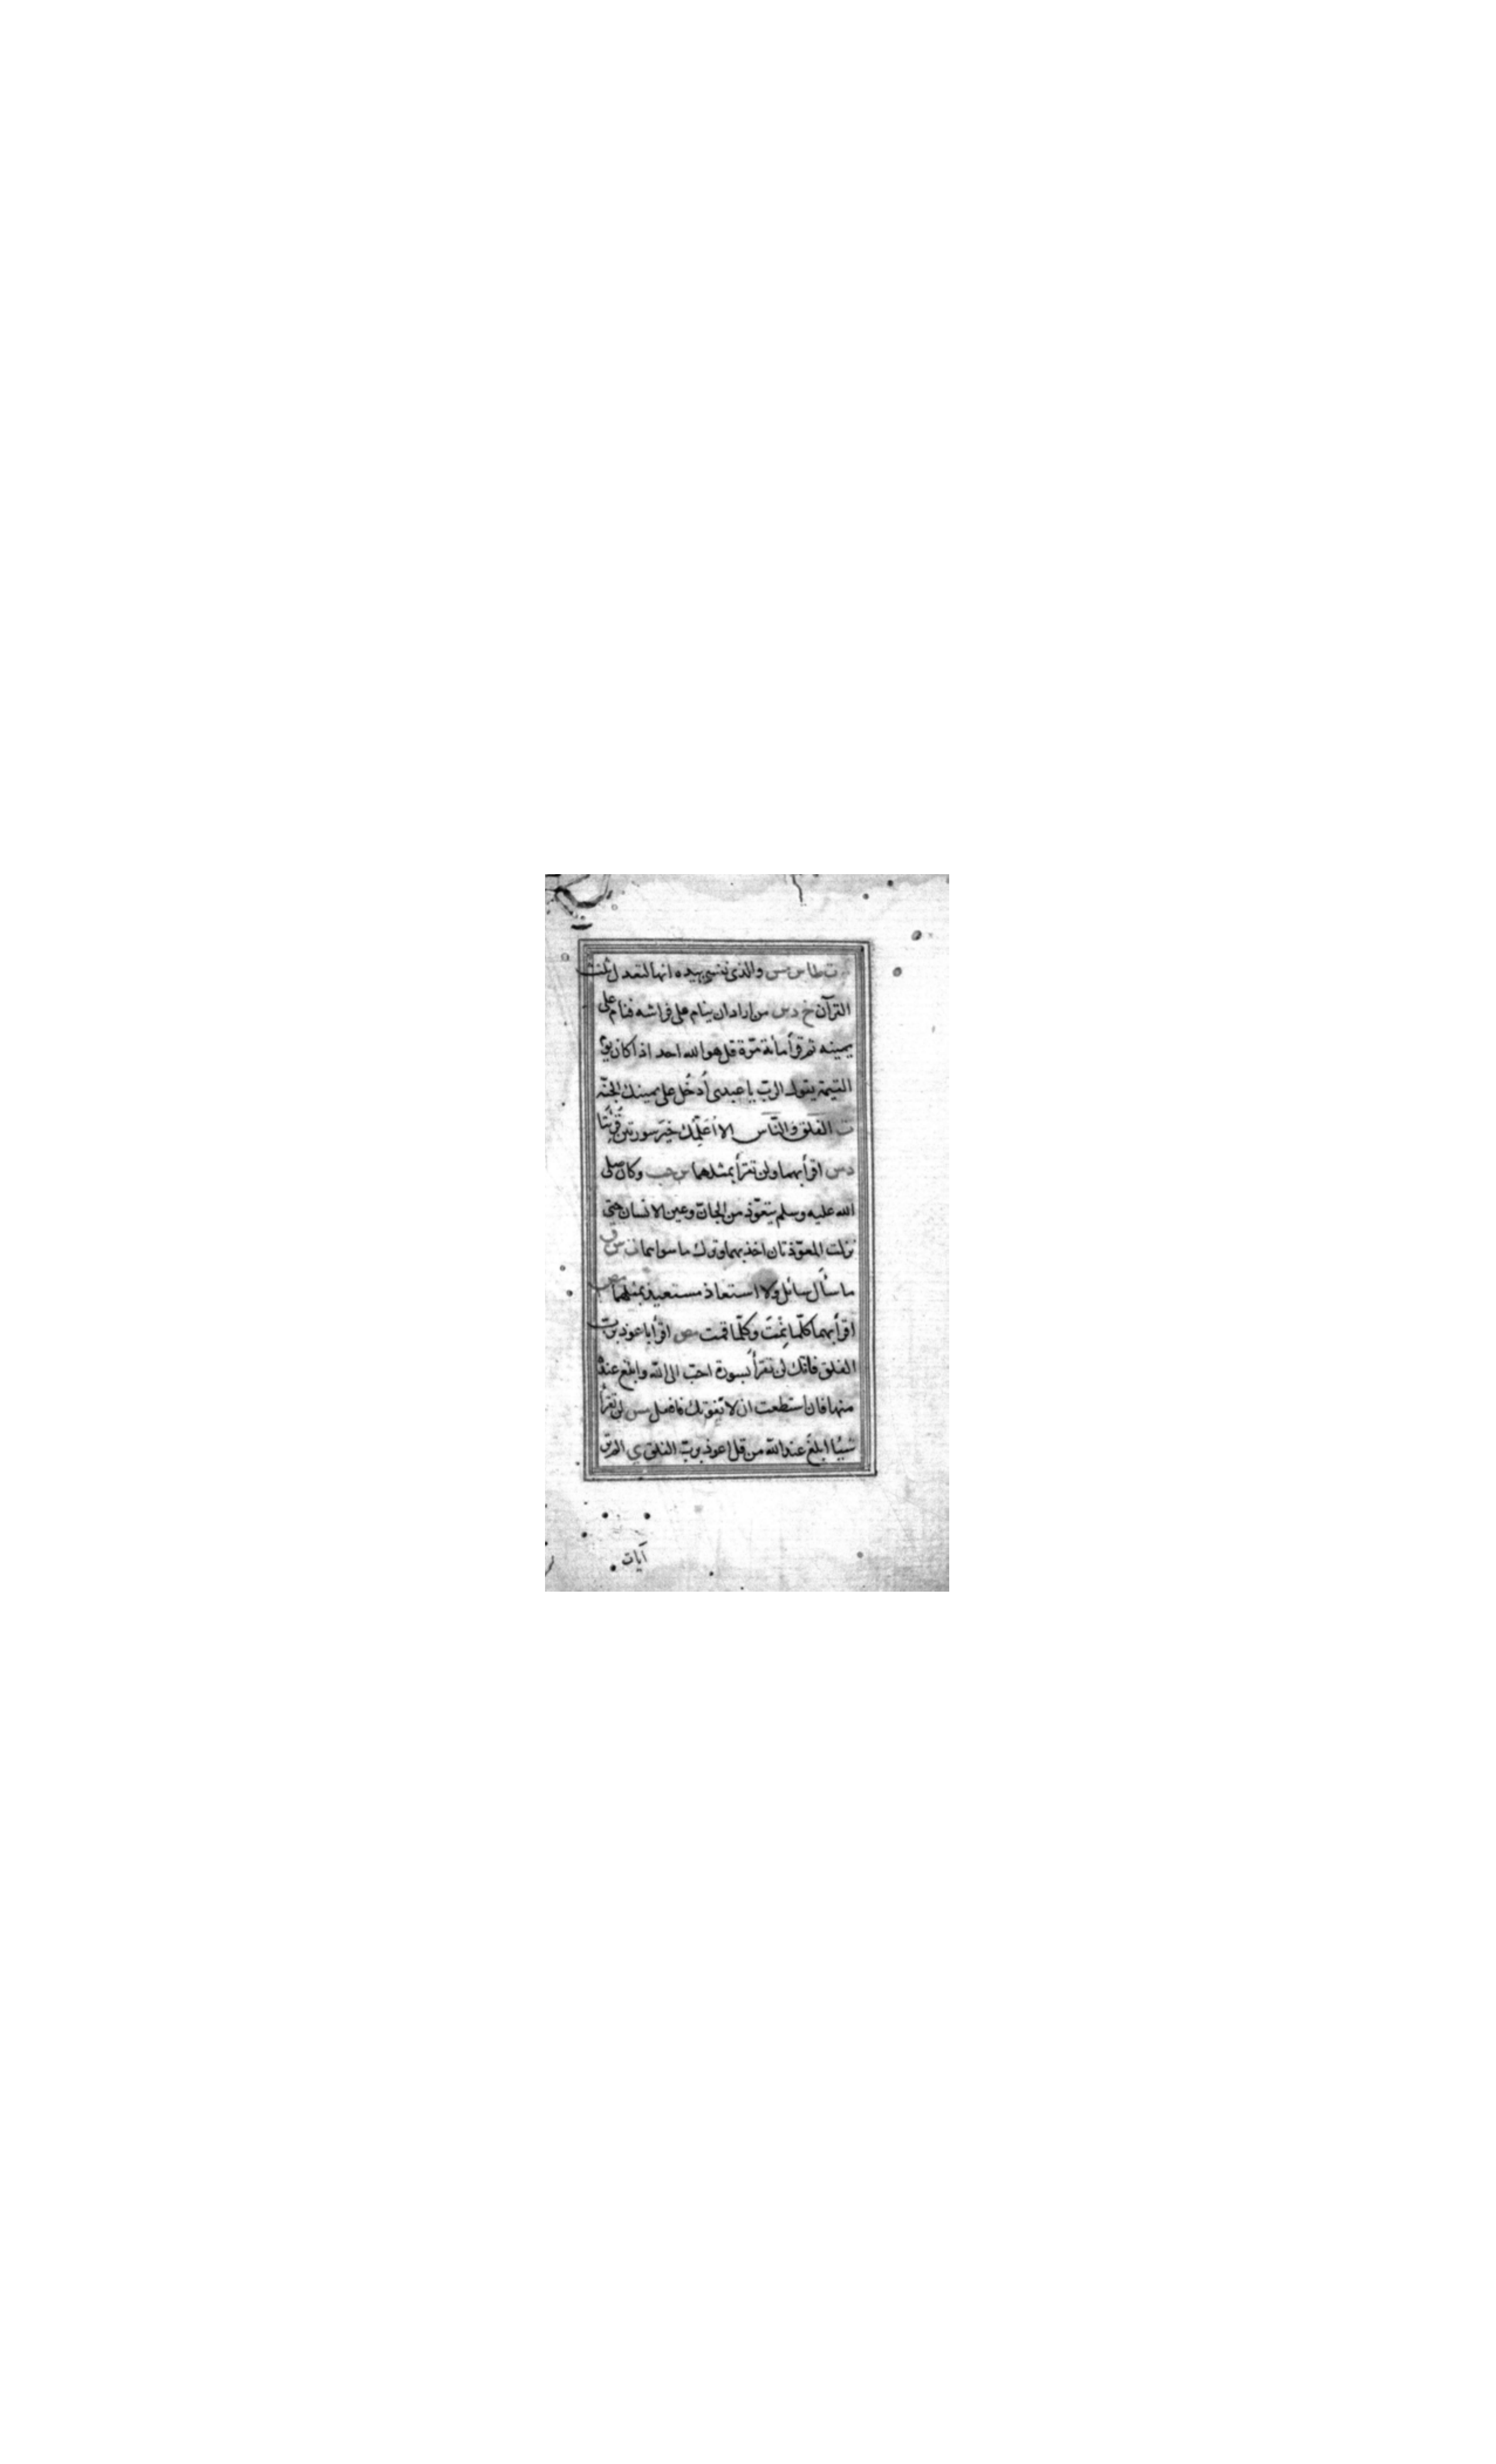 ت طا س مس والذى نفسى بيده انها لتعدل ثلث
القرآن خ د س من اراد ان ينام على فراشه فنام على
يمينه ثم قرأ مائة مرّة قل هو الله احد اذا كان يوم
القيمة يقول الربّ يا عبدى أدخُل على يمينك الجنّة
ت الفَلَق وَالنَّاس الا أعَلِّمُك خيَرَ سورتين قُرِئتَا
د س اقرأ بهما ولن تقرأ بمثلهما س حب وكان صلى
الله عليه وسلم يتعوّذ من الجانّ وعين الانسان حتى
نزلت المعوّذتان اخذ بهما وترك ما سواهما ت س ق
ما سأل سائل ولا استعاذ مستعيذ بمثلهما مص
اقرأ بهما كلّما نِمتَ وكلّما قمت مص اقرأ باعوذ بربّ
الفلق فانّك لن تقرأ بسورة احبّ الى الله وابلغ عنده
منها فان استطعت ان لا تفوتك فافعل مس لن تقرأ
شيئا ابلغ عند الله من قل اعوذ بربّ الفلق ي الم تر
آيات